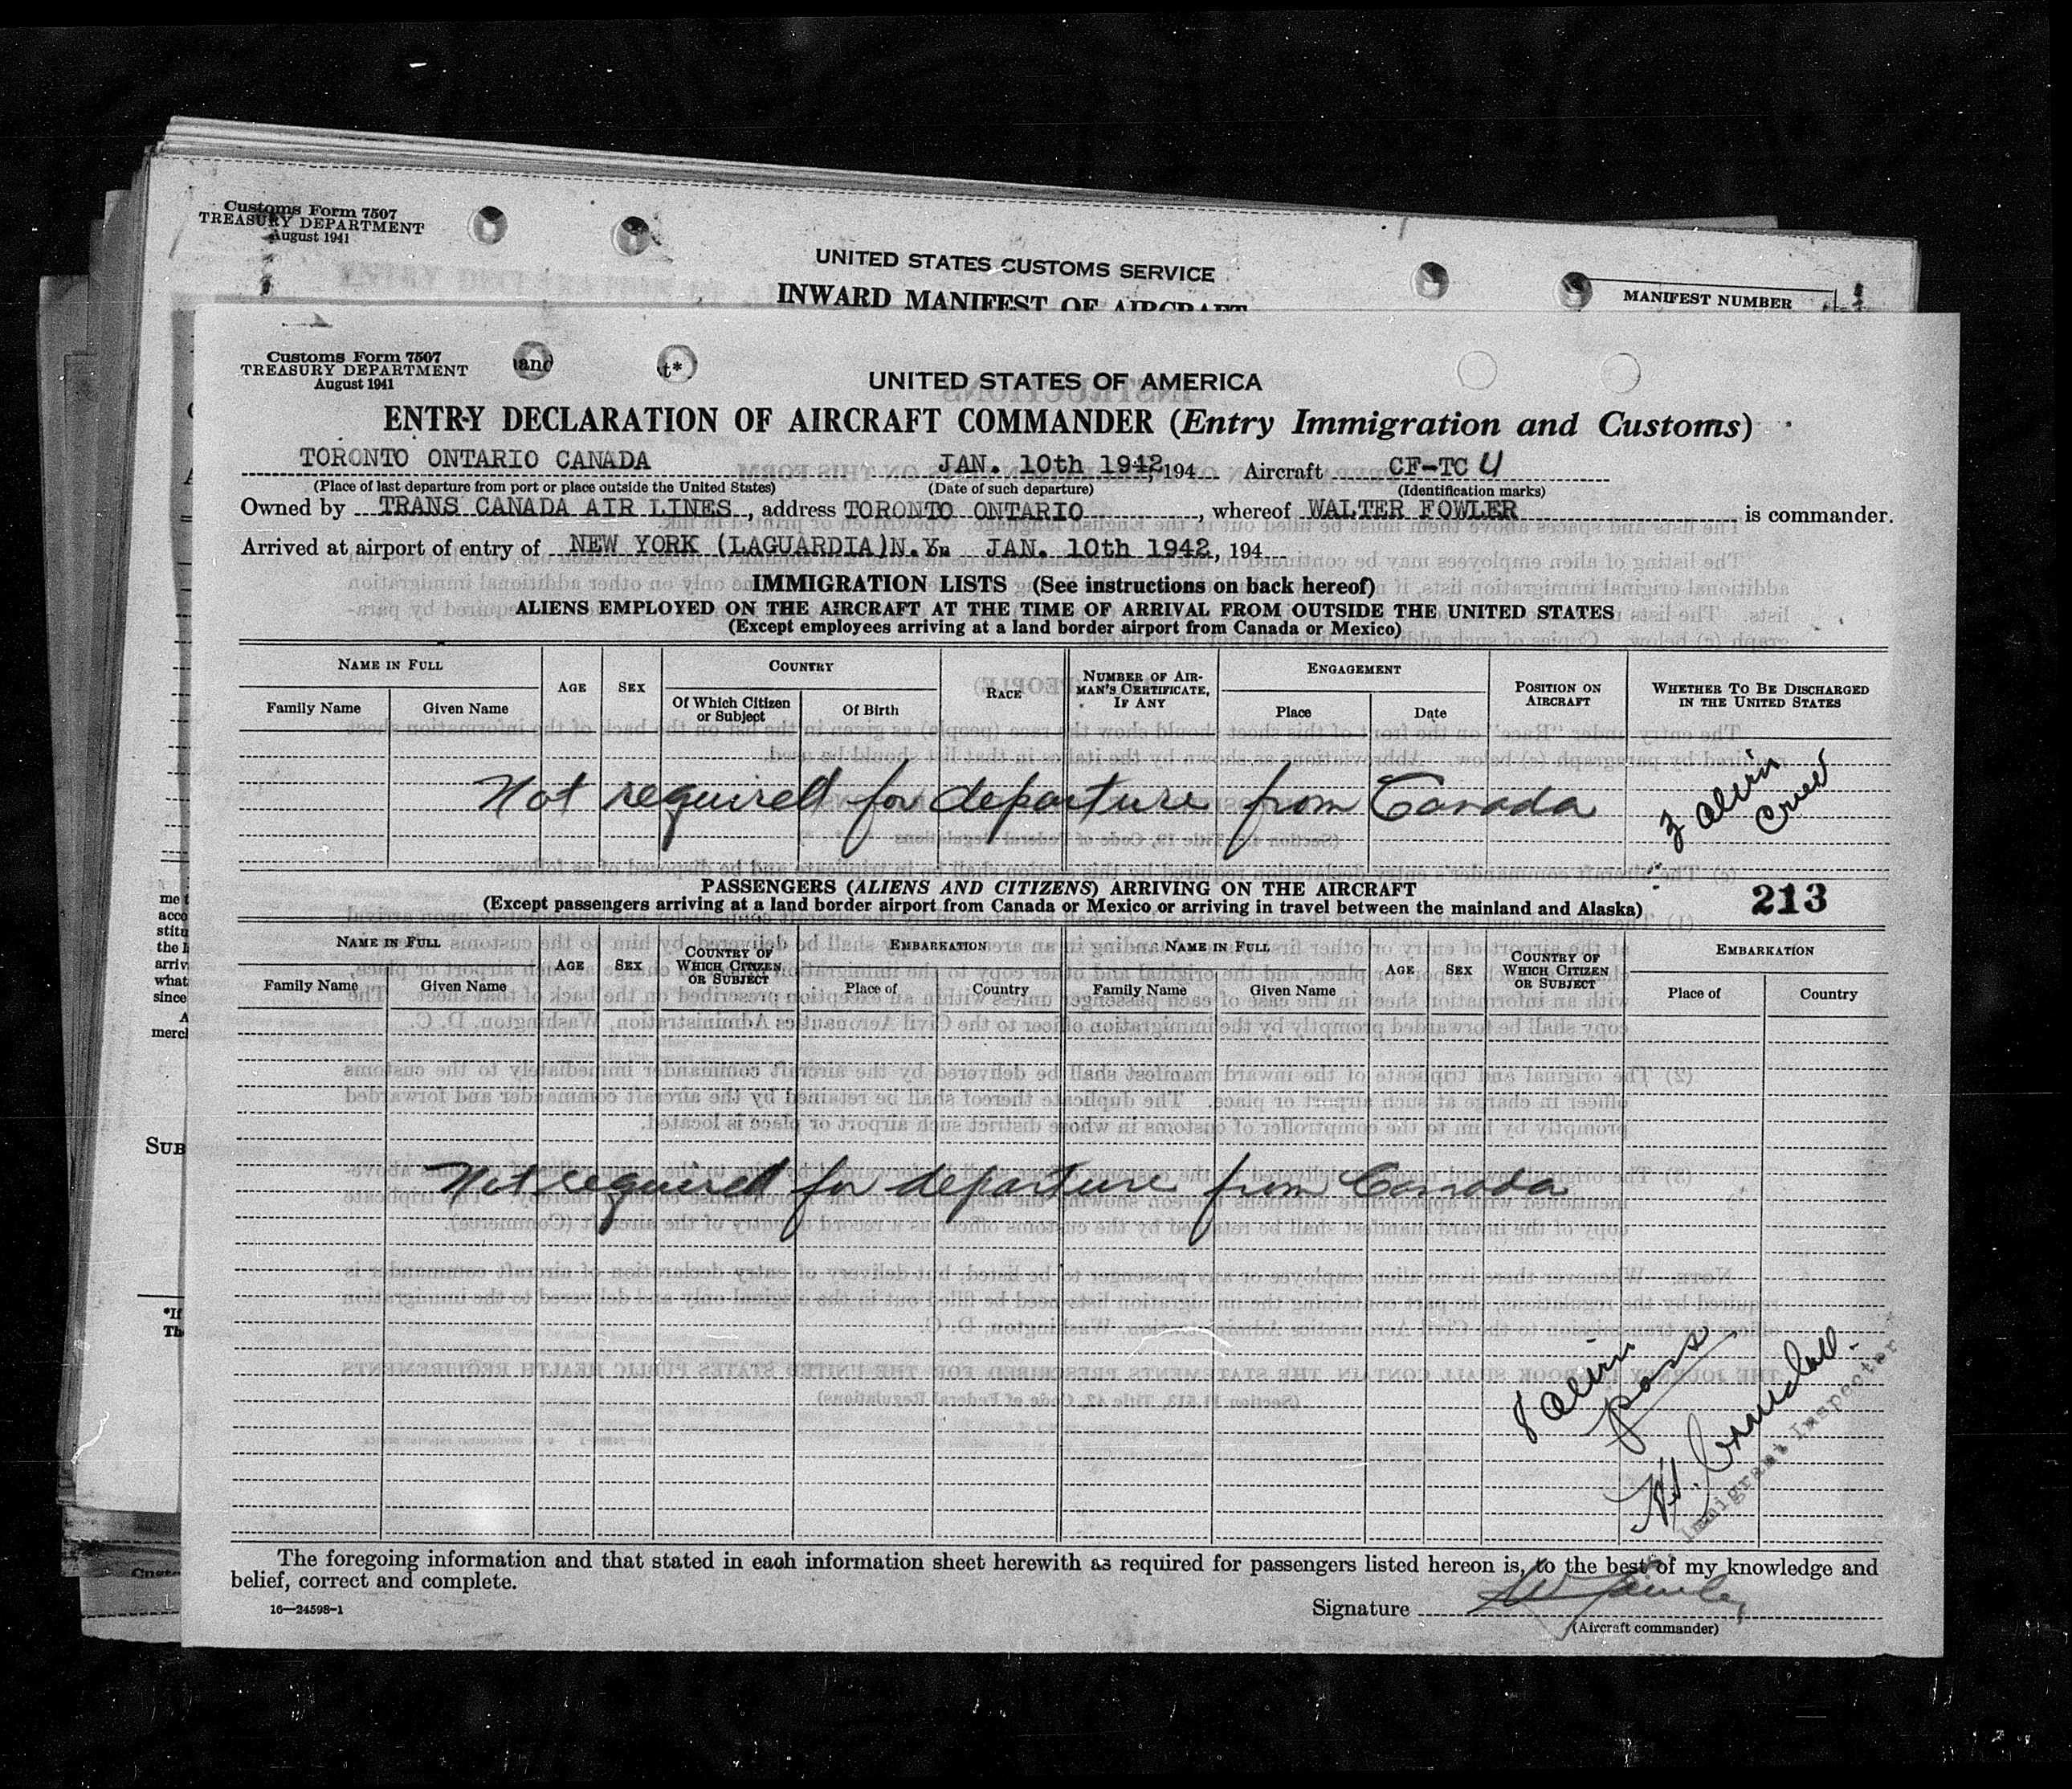 Customs Form 7507
TREASURY DEPARTMENT
August 1941
UNITED STATES CUSTOMS SERVICE
INWARD MANIFEST OF AIRCRAFT
MANIFEST NUMBER
Customs Form 7507
TREASURY DEPARTMENT
August 1941
and
t*
UNITED STATES OF AMERICA
ENTRY DECLARATION OF AIRCRAFT COMMANDER (Entry Immigration and Customs)
TORONTO ONTARIO CANADA JAN. 10th 1942, 194 Aircraft CF-TC U
(Place of last departure from port or place outside the United States) (Date of such departure) (Identification marks)
Owned by TRANS CANADA AIR LINES, address TORONTO ONTARIO, whereof WALTER FOWLER is commander.
Arrived at airport of entry of NEW YORK (LAGUARDIA)N.Y. JAN. 10th 1942, 194
IMMIGRATION LISTS (See instructions on back hereof)
ALIENS EMPLOYED ON THE AIRCRAFT AT THE TIME OF ARRIVAL FROM OUTSIDE THE UNITED STATES
(Except employees arriving at a land border airport from Canada or Mexico)
NAME IN FULL AGE SEX COUNTRY RACE NUMBER OF AIRMAN'S CERTIFICATE, IF ANY ENGAGEMENT POSITION ON AIRCRAFT WHETHER TO BE DISCHARGED IN THE UNITED STATES
Family Name Given Name Of Which Citizen or Subject Of Birth Place Date
Not required for departure from Canada
3 alien
crew
PASSENGERS (ALIENS AND CITIZENS) ARRIVING ON THE AIRCRAFT
(Except passengers arriving at a land border airport from Canada or Mexico or arriving in travel between the mainland and Alaska)
213
NAME IN FULL AGE SEX COUNTRY OF WHICH CITIZEN OR SUBJECT EMBARKATION NAME IN FULL AGE SEX COUNTRY OF WHICH CITIZEN OR SUBJECT EMBARKATION
Family Name Given Name Place of Country Family Name Given Name Place of Country
Not required for departure from Canada
8 alien
pass
Immigrant Inspector
The foregoing information and that stated in each information sheet herewith as required for passengers listed hereon is, to the best of my knowledge and
belief, correct and complete.
16—24598-1
Signature W Fowler
(Aircraft commander)